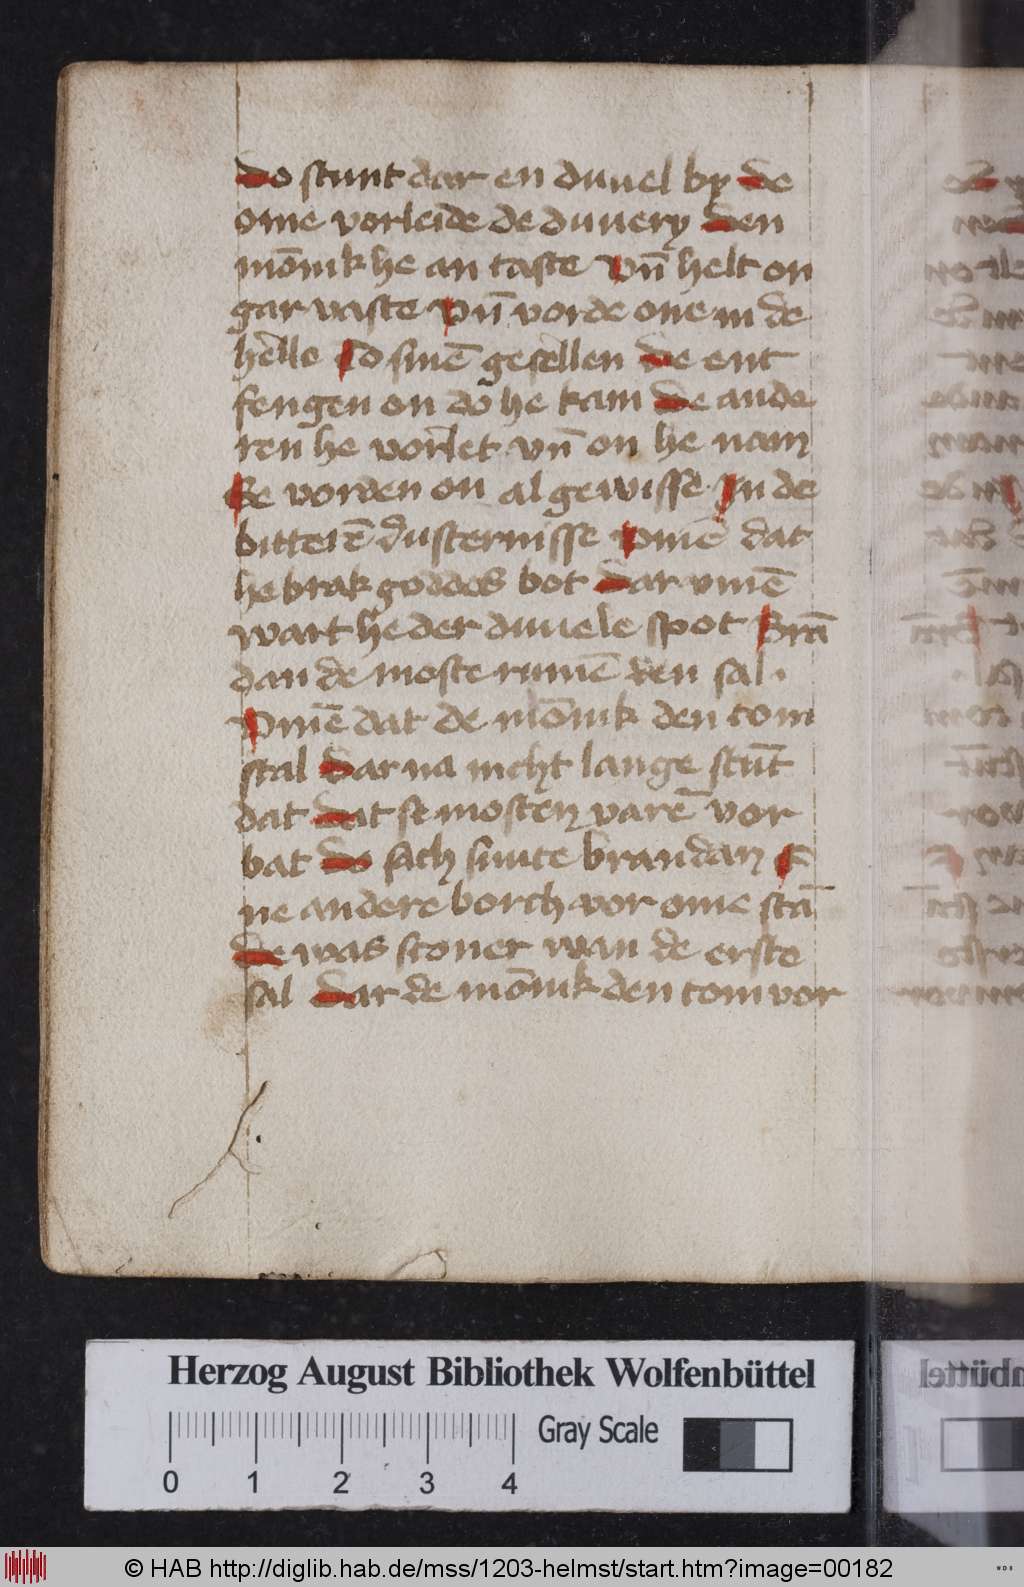 Do stunt dar en duuel by De
ome vorleide de duuery Den
mōnik he an taste Vn̄ helt on
gar vaste Vn̄ vorde one in de
helle To sinē gesellen De ent
fengen on dō he kam De ande
ren he vorlet vn̄ on he nam
Se vorden on al gewisse In de
bitterē dusternisse Vmē dat
he brak goddes bot Dar vmē
wart he der duuele spot Brā
dan de moste rumē den sal ·
Vmē dat de mōnik den tom
stal Dar na nicht lange stūt
dat Dat se mosten varē vor
bat Do sach sunte brandan E
ne andere borch vor ome stā
De was sconer wan de erste
sal Dar de mōnik den tom vor
Herzog August Bibliothek Wolfenbüttel
Gray Scale
0 1 2 3 4
© HAB http://diglib.hab.de/mss/1203-helmst/start.htm?image=00182